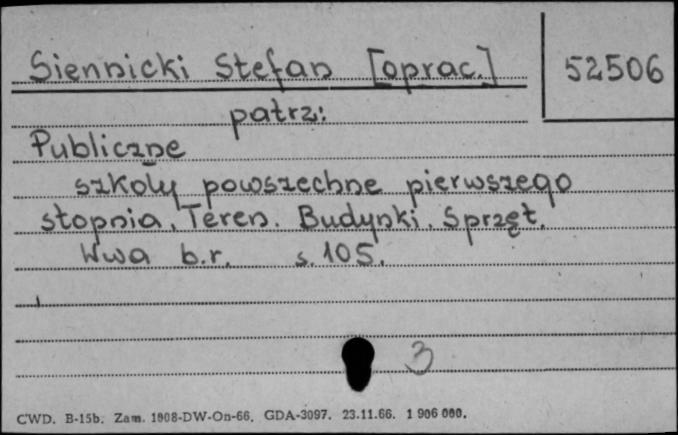 Siennicki Stefan [oprac.]
52506
patrz:
Publiczne
szkoły powszechne pierwszego
stopnia. Teren. Budynki. Sprzęt.
Wwa b.r. s. 105.
3
CWD. B-15b. Zam. 1908-DW-On-66. GDA-3097. 23.11.66. 1 906 000.